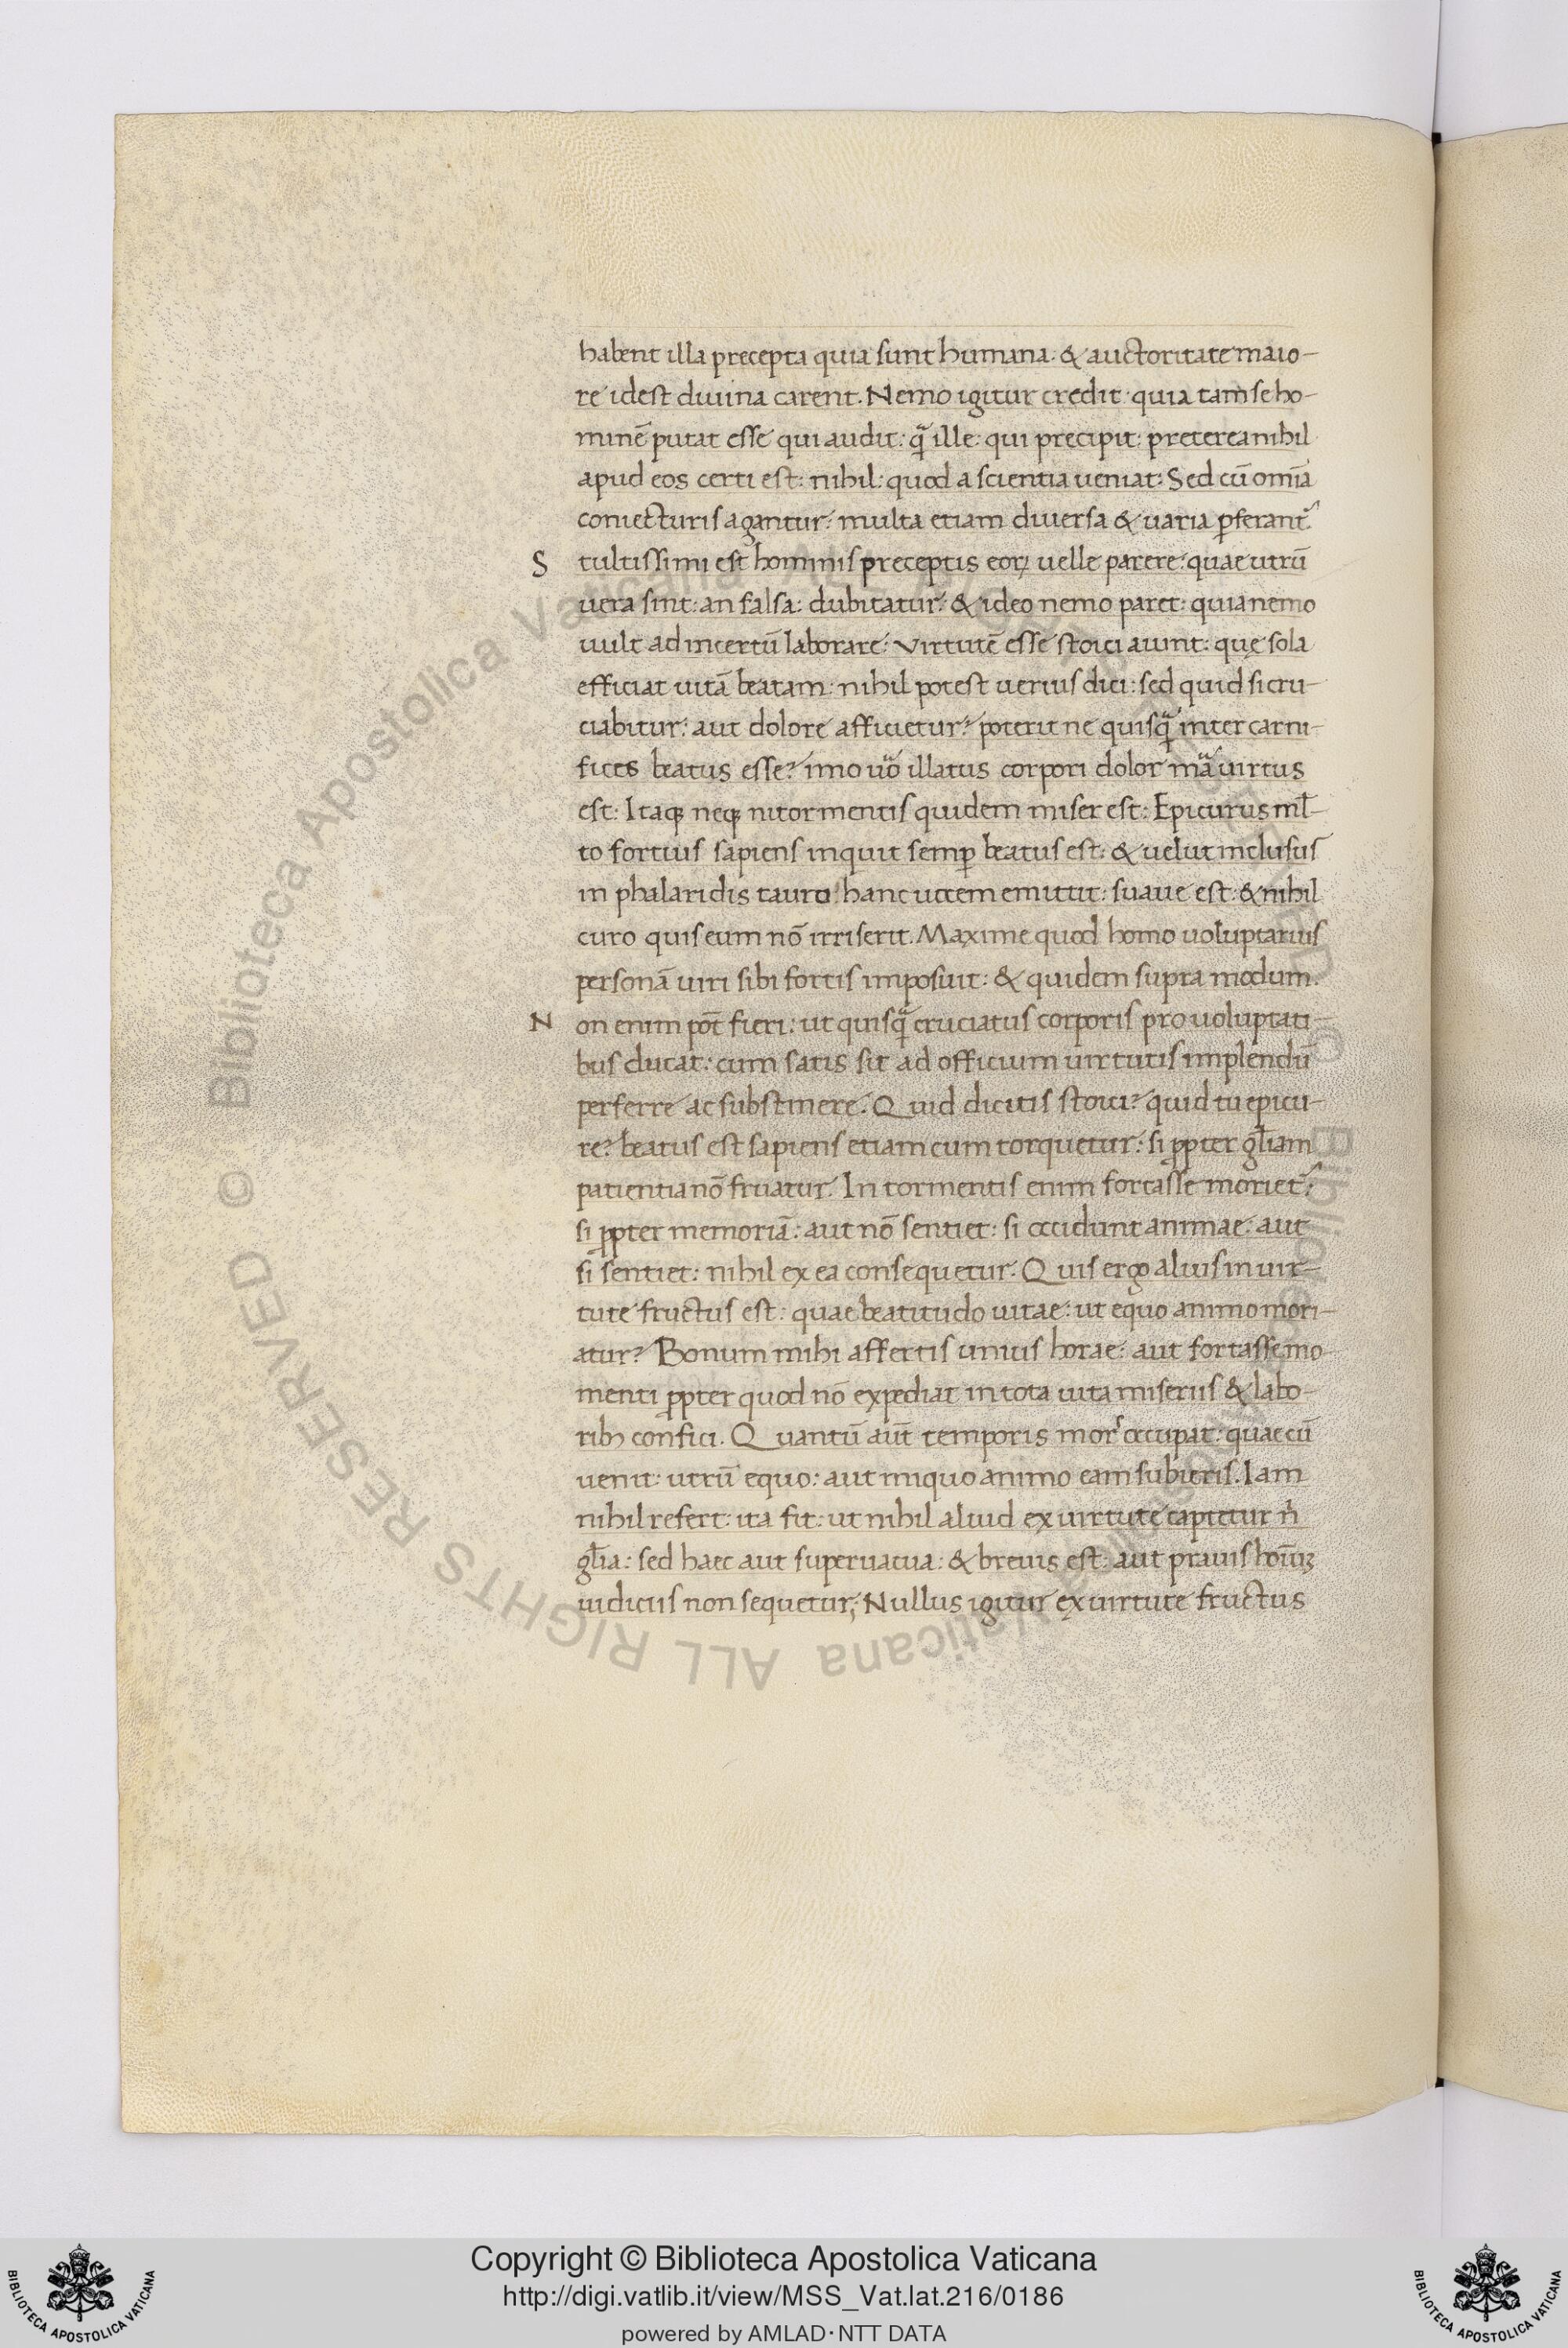 habent illa precepta quia sunt humana: & auctoritate maio-
re idest diuina carent. Nemo igitur credit: quia tam se ho-
minē putat esse qui audit: quā ille: qui precipit: preterea nihil
apud eos certi est: nihil: quod a scientia ueniat: Sed cū omīa
coniecturis agantur: multa etiam diuersa & uaria ꝑferant᷑.
S tultissimi est hominis preceptis eoꝝ uelle parere: quae utrū
uera sint: an falsa: dubitatur: & ideo nemo paret: quia nemo
uult ad incertū laborare: Virtutē esse stoici aiunt: quę sola
efficiat uitā beatam: nihil potest uerius dici: sed quid si cru-
ciabitur: aut dolore afficietur? poterit ne quisq̄ inter carni-
fices beatus esse? imo uo illatus corpori dolor mā uirtus
est: Itaqꝫ neqꝫ ni tormentis quidem miser est: Epicurus ml̄-
to fortius sapiens inquit semꝑ beatus est: & uelut inclusus
in phalaridis tauro: hanc uocem emittit: suaue est: & nihil
curo quis eum nō irriserit. Maxime quod homo uoluptarius
personā uiri sibi fortis imposuit: & quidem supra modum.
N on enim pōt fieri: ut quisq̄ cruciatus corporis pro uoluptati-
bus ducat: cum satis sit ad officium uirtutis implendū
perferre ac substinere. Quid dicitis stoici? quid tu epicu-
re? beatus est sapiens etiam cum torquetur: si ꝓpter gl̄iam
patientia nō fruatur. In tormentis enim fortasse moriet᷑:
si ꝓpter memoriā: aut nō sentiet: si occidunt animae: aut
si sentiet: nihil ex ea consequetur. Quis ergo alius in uir-
tute fructus est: quae beatitudo uitae: ut equo animo mori-
atur? Bonum mihi affertis unius horae: aut fortasse mo-
menti ꝓpter quod nō expediat in tota uita miseriis & labo-
ribꝫ confici. Quantū aūt temporis mor' occupat: quae cū
uenit: utrū equo: aut iniquo animo eam subieris. Iam
nihil refert: ita fit: ut nihil aliud ex uirtute captetur n̄
gl̄ia: sed haec aut superuacua: & breuis est: aut prauis hoīuꝫ
iudiciis non sequetur; Nullus igitur ex uirtute fructus
Copyright © Biblioteca Apostolica Vaticana
http://digi.vatlib.it/view/MSS_Vat.lat.216/0186
powered by AMLAD·NTT DATA
BIBLIOTECA APOSTOLICA VATICANA
BIBLIOTECA APOSTOLICA VATICANA